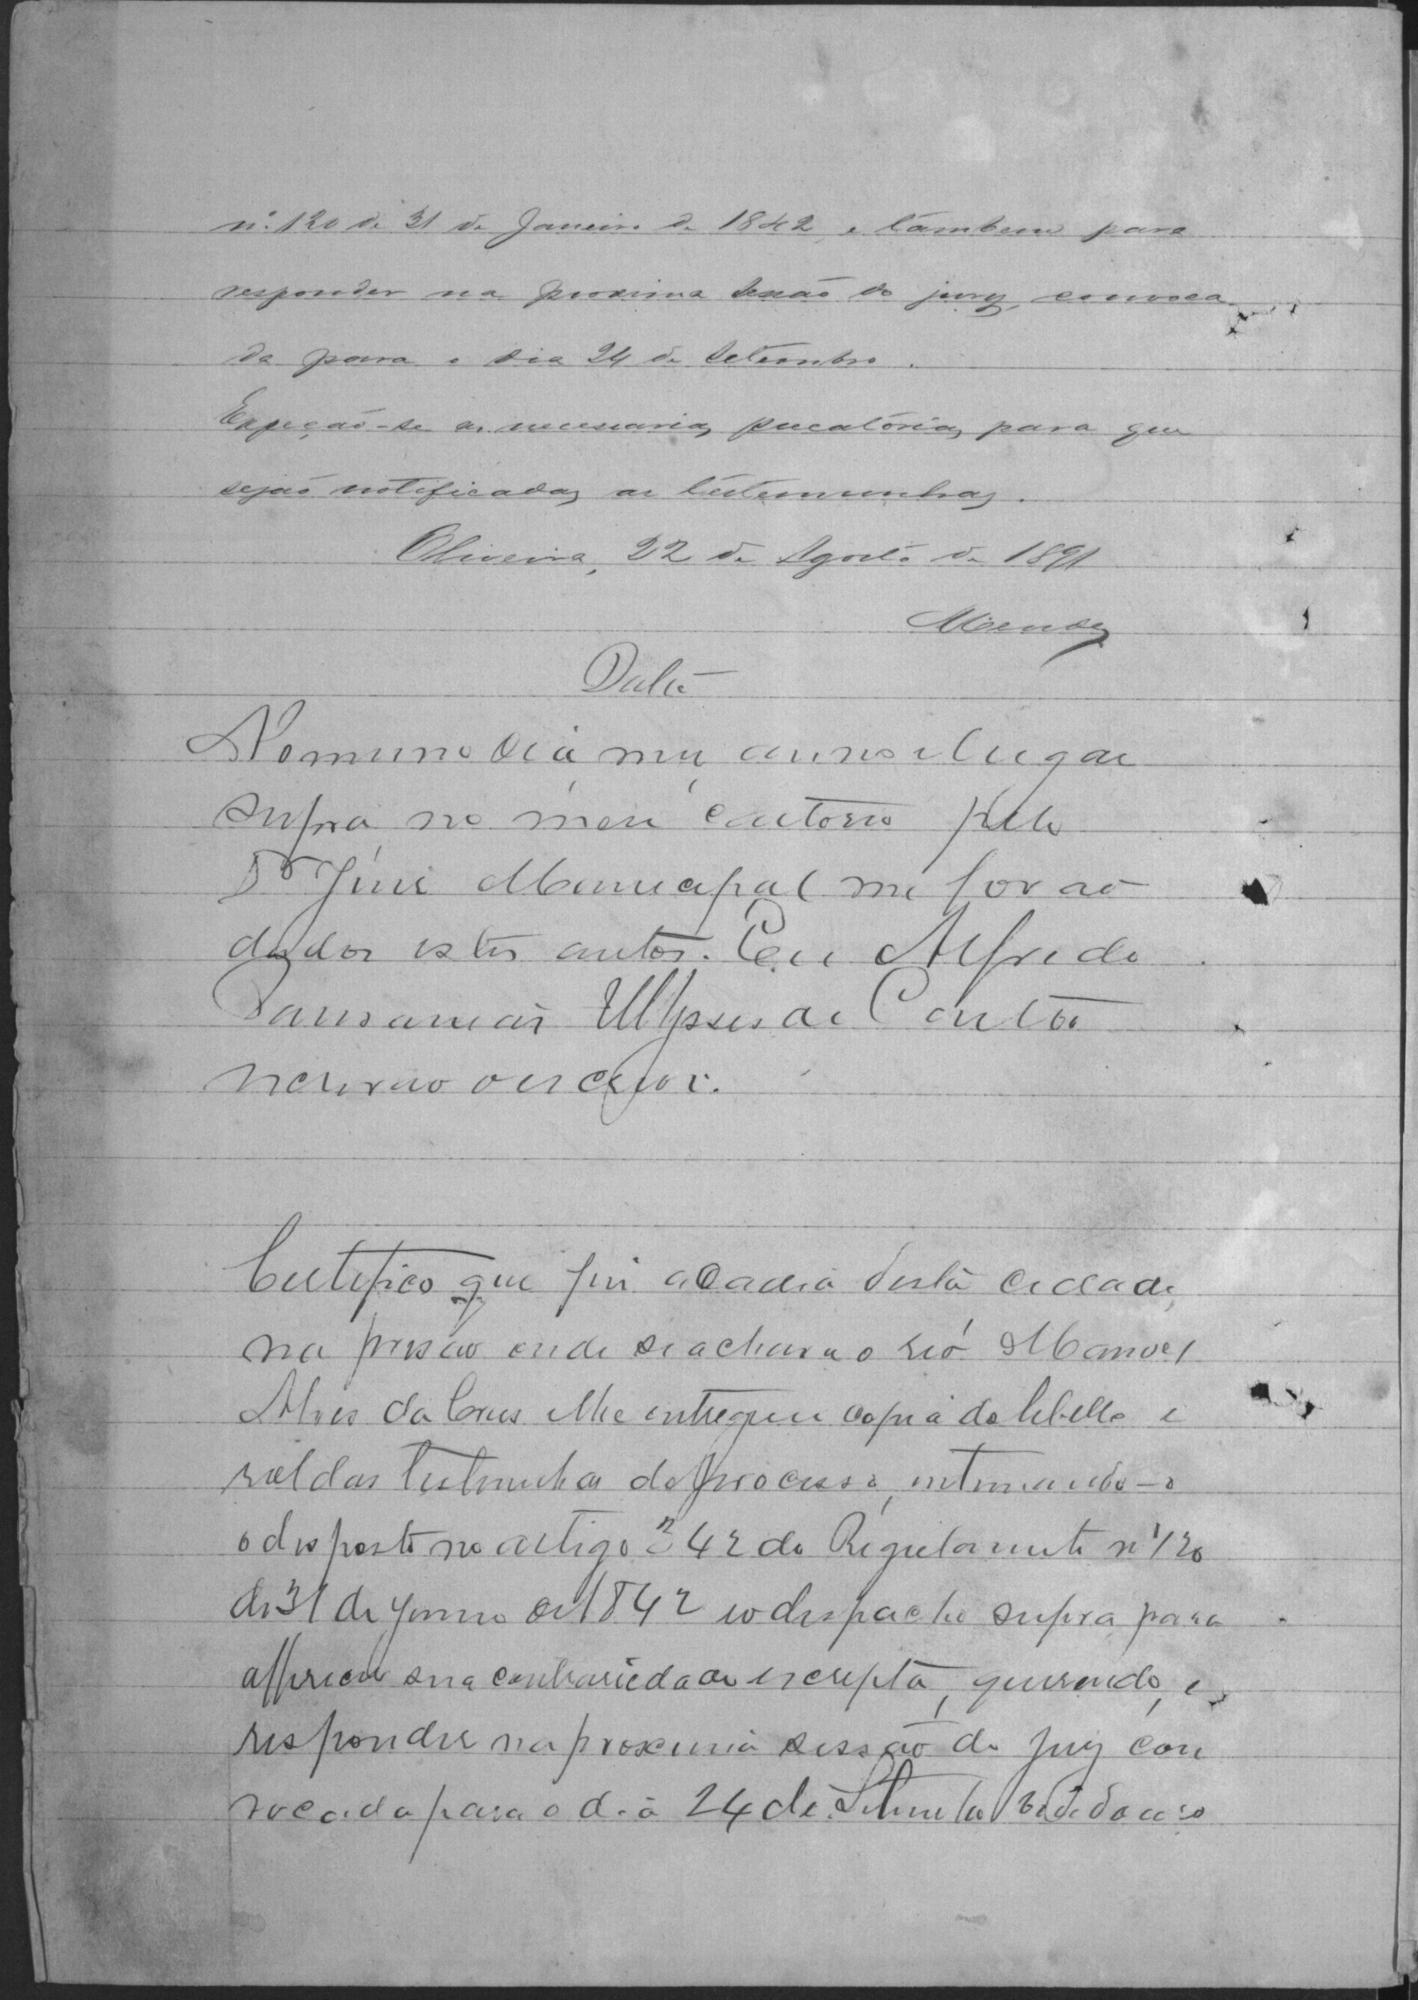 nº 120 de 31 de Janeiro de 1842, e tambem para
responder na proxima sessão do jury, convoca
da para o dia 24 de Setembro.
Expeção-se as necessarias precatórias, para que
sejão notificadas as testemunhas.
Oliveira, 22 de Agosto de 1891
Mendes
Data
No mesmo dia mez, anno e lugar
supra no meu cartorio pelo
Dr Juiz Municipal me forão
dados estes autos. Eu Alfredo
Pausanias Ulysses de Couto
escrivão o escrevi.
Certifico que fui a Cadeia desta cidade,
na prisão onde se achava o reó Manoel
Alves da Crus e lhe entreguei copia do libello e
rol das testemunhas do processo, intimando-o
o disposto no artigo 342 do Regulamento nº 120
de 31 de Janeiro de 1842 e o despacho supra para
offerecer sua contrariedade escripta, querendo, e
responder na proxima sessão do jury con
vocada para o dia 24 de Setembro